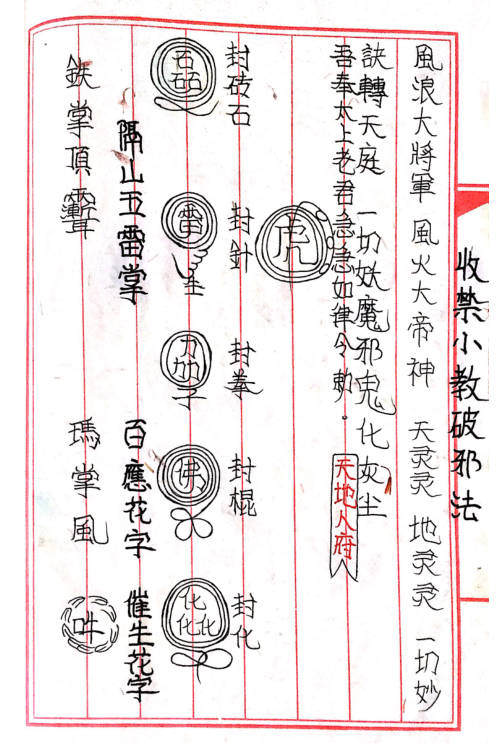 收禁小教破邪法
風浪大將軍 風火大帝神 天灵灵 地灵灵 一切妙
訣轉天庭 一切妖魔邪鬼化灰尘
吾奉太上老君急急如律令勅。
天地人府
虎
封砖石
封針
封拳
封棍
封化
石石石
雷
佛
化化化
隔山五雷掌
百應花字
催生花字
鉄掌頂
瑪掌風